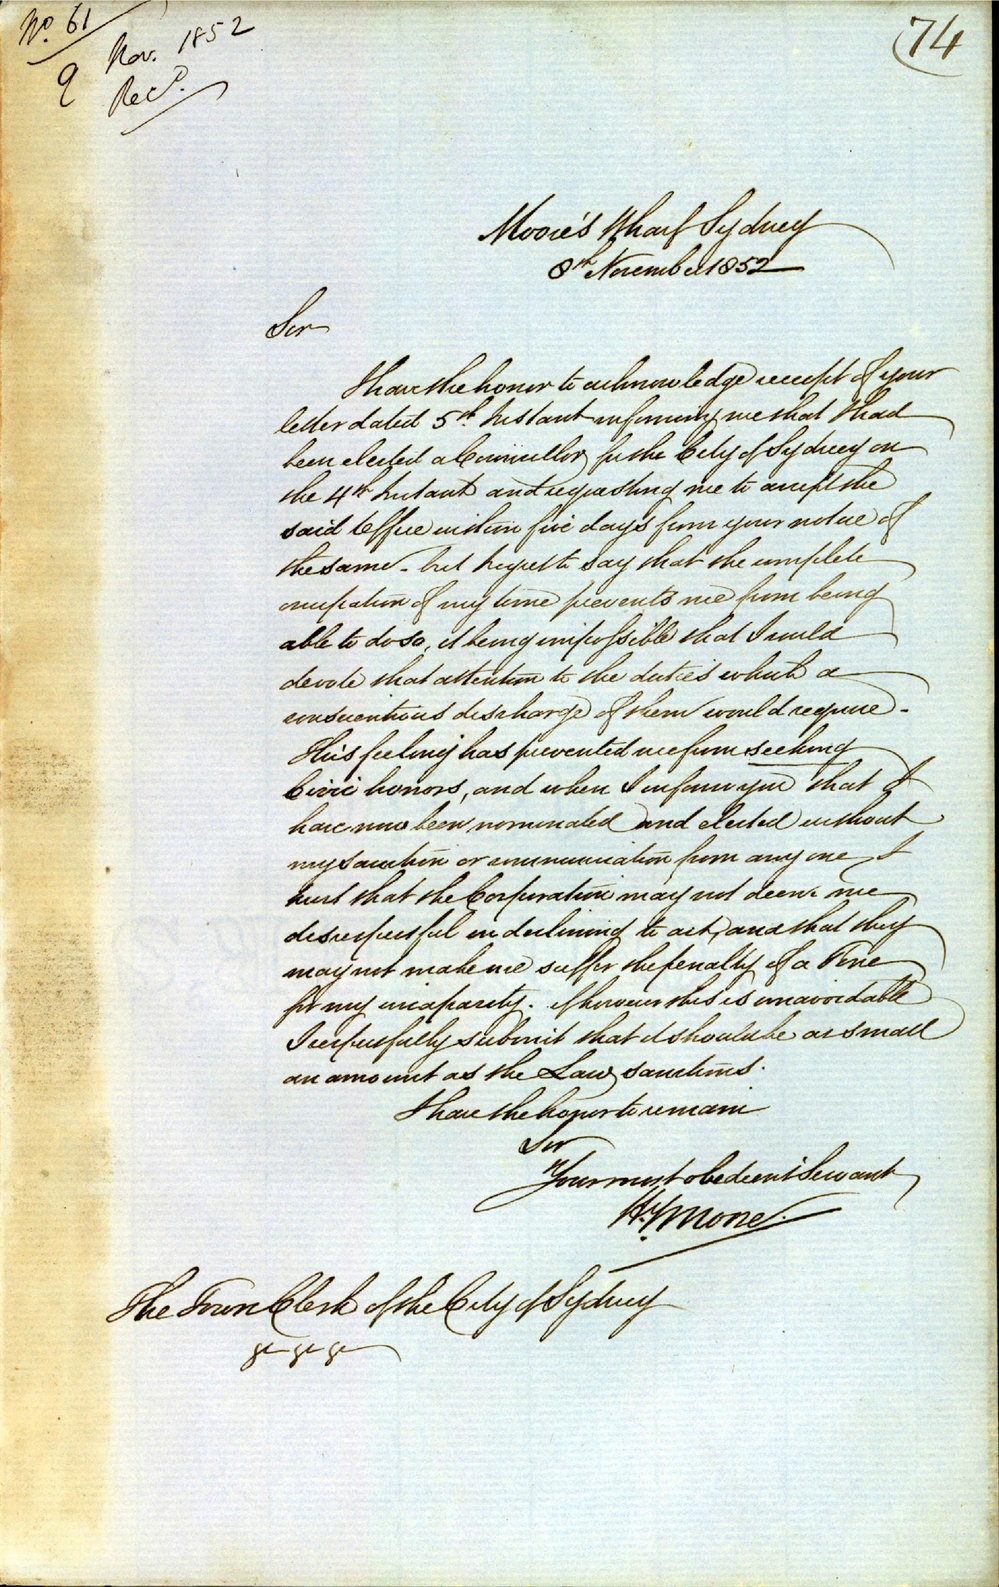 No. 61
9 Nov. 1852
Recd.
74
Moore's Wharf Sydney
8th November 1852
Sir
I have the honor to acknowledge receipt of your
letter dated 5th Instant informing me that I had
been elected a Councillor for the City of Sydney on
the 4th Instant and requesting me to accept the
said Office within five days from your notice of
the same - but regret to say that the complete
occupation of my time prevents me from being
able to do so, it being impossible that I could
devote that attention to the duties which a
conscientious discharge of them would require -
This feeling has prevented me from seeking
Civic honors, and when I inform you that I
have now been nominated and elected without
my sanction or communication from any one I
trust that the Corporation may not deem me
disrespectful in declining to act, and that they
may not make me suffer the penalty of a Fine
for my incapacity. If however this is unavoidable
I respectfully submit that it should be as small
an amount as the Law sanctions.
I have the honor to remain
Sir
Your most obedient Servant
Hy. Moore.
The Town Clerk of the City of Sydney
&c &c &c